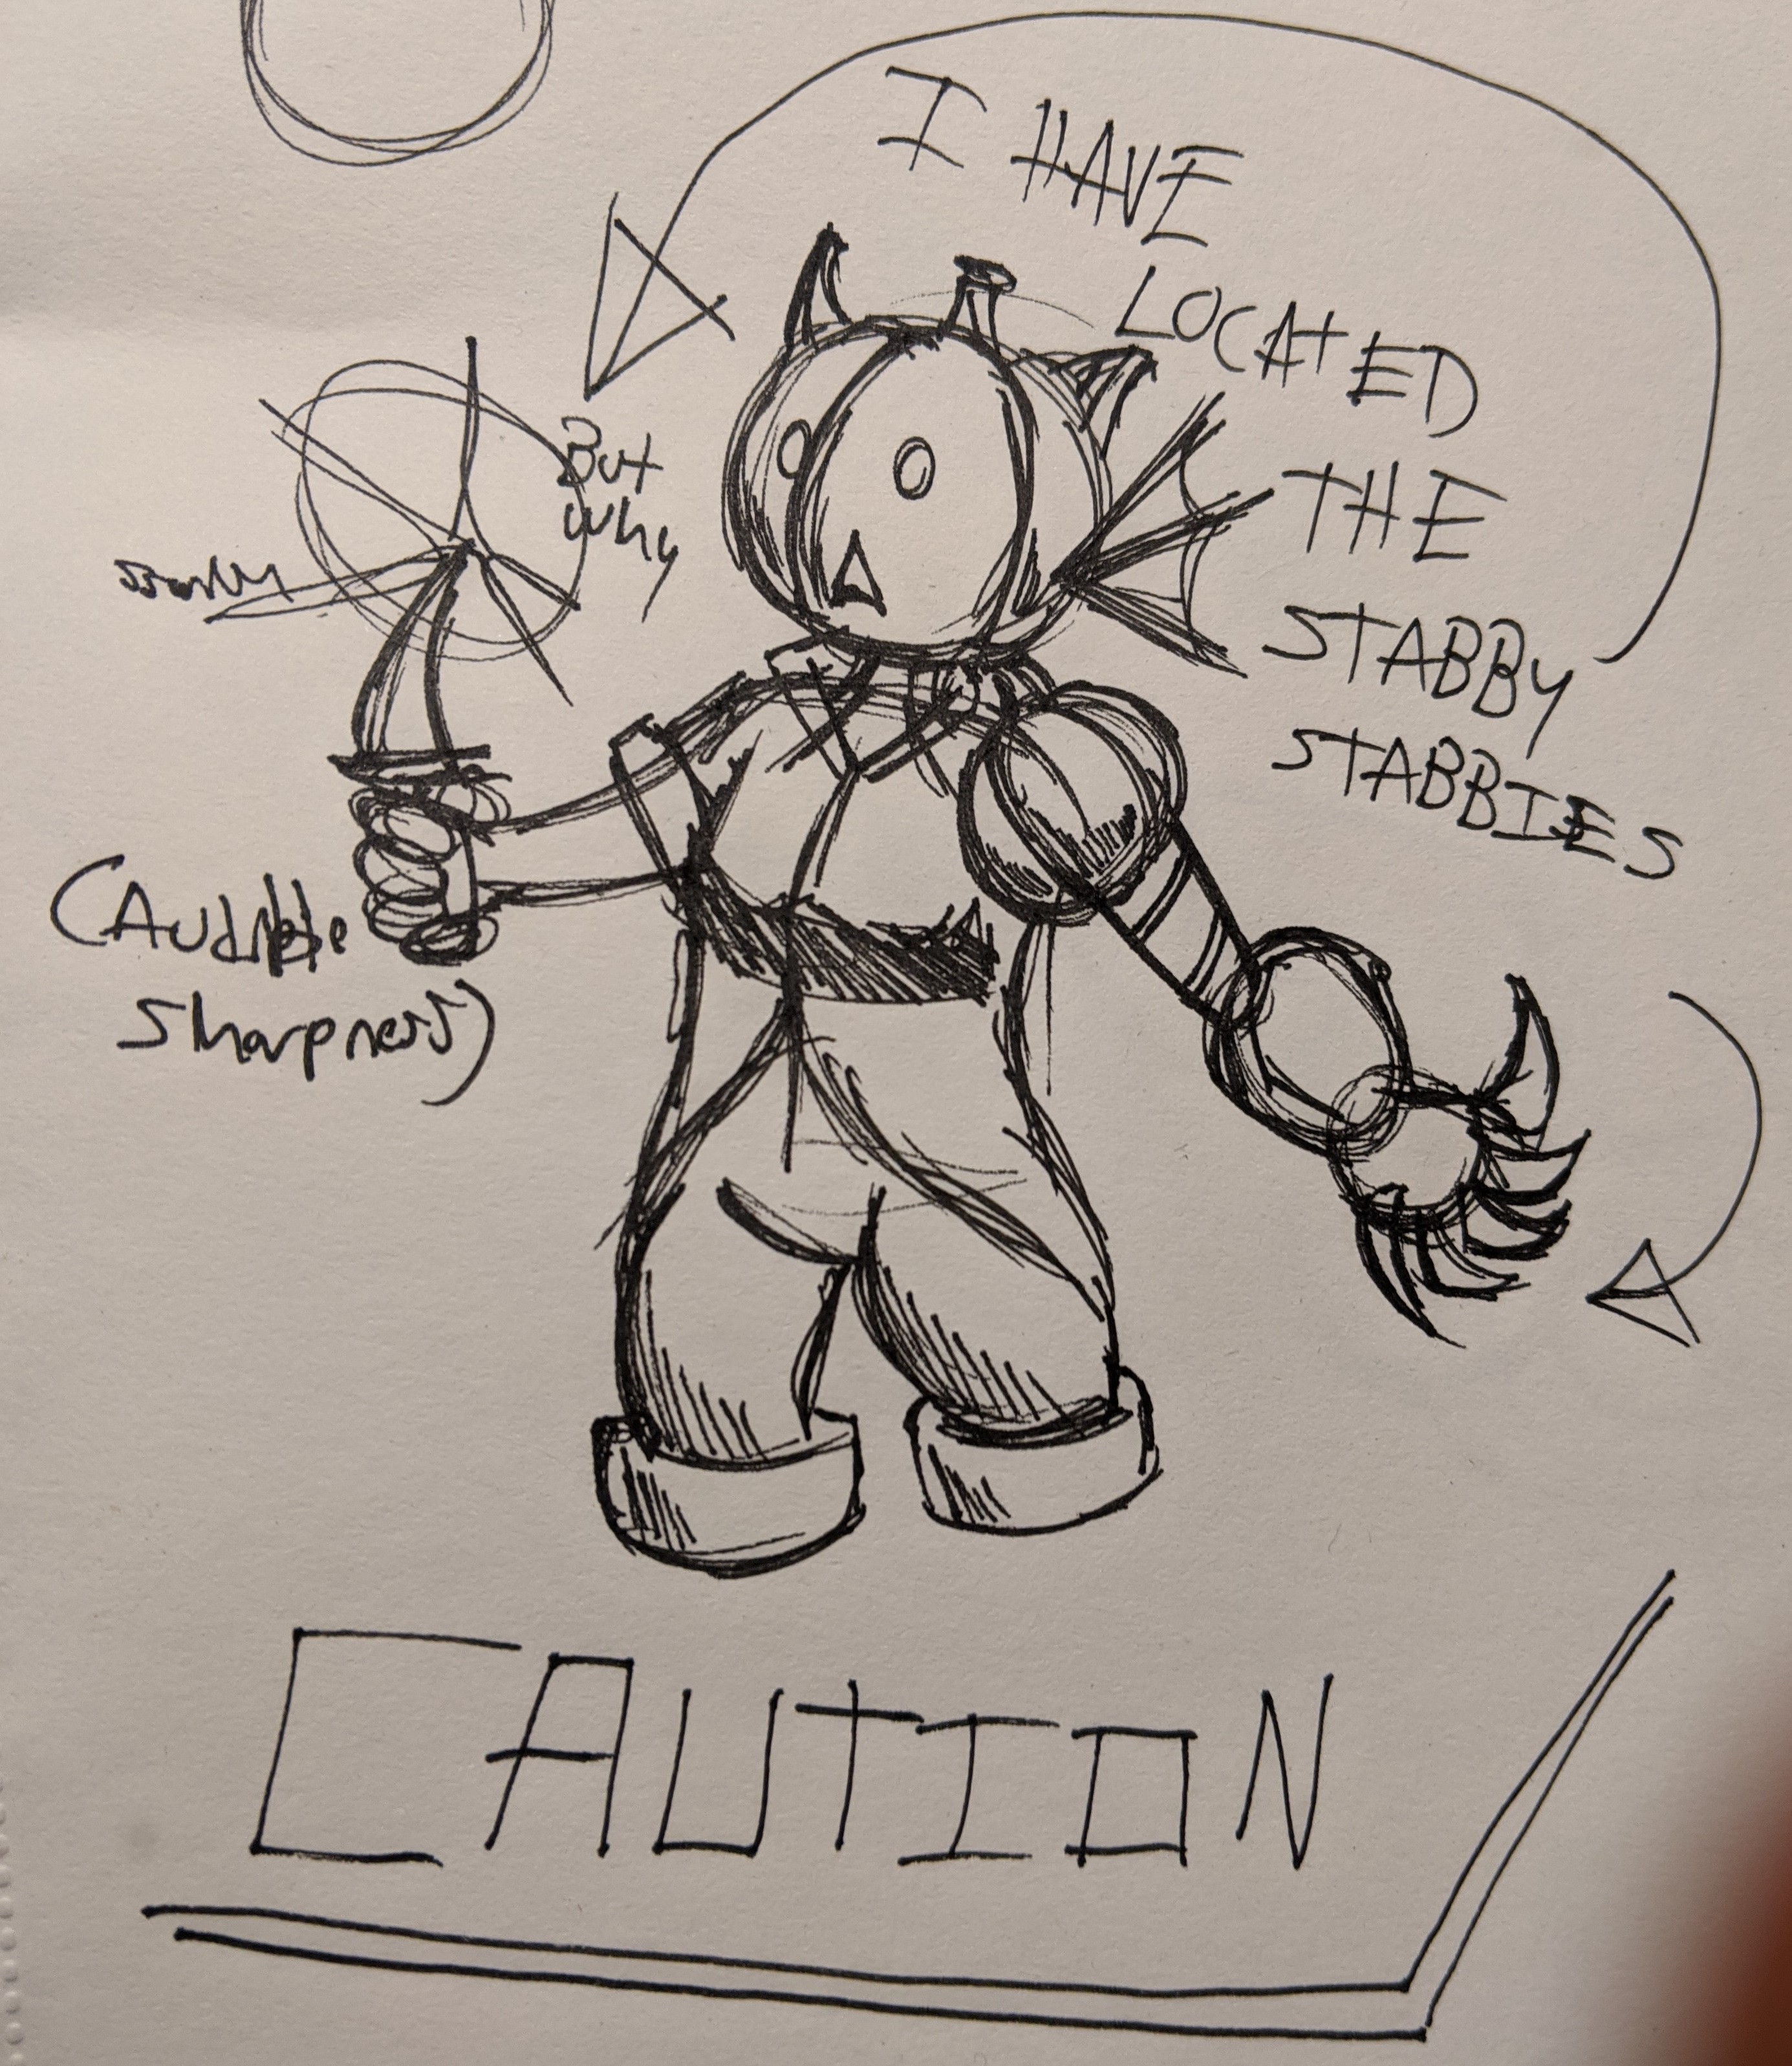 I HAVE
LOCATED
THE
STABBY
STABBIES
But
why
(Audible
sharpness)
CAUTION